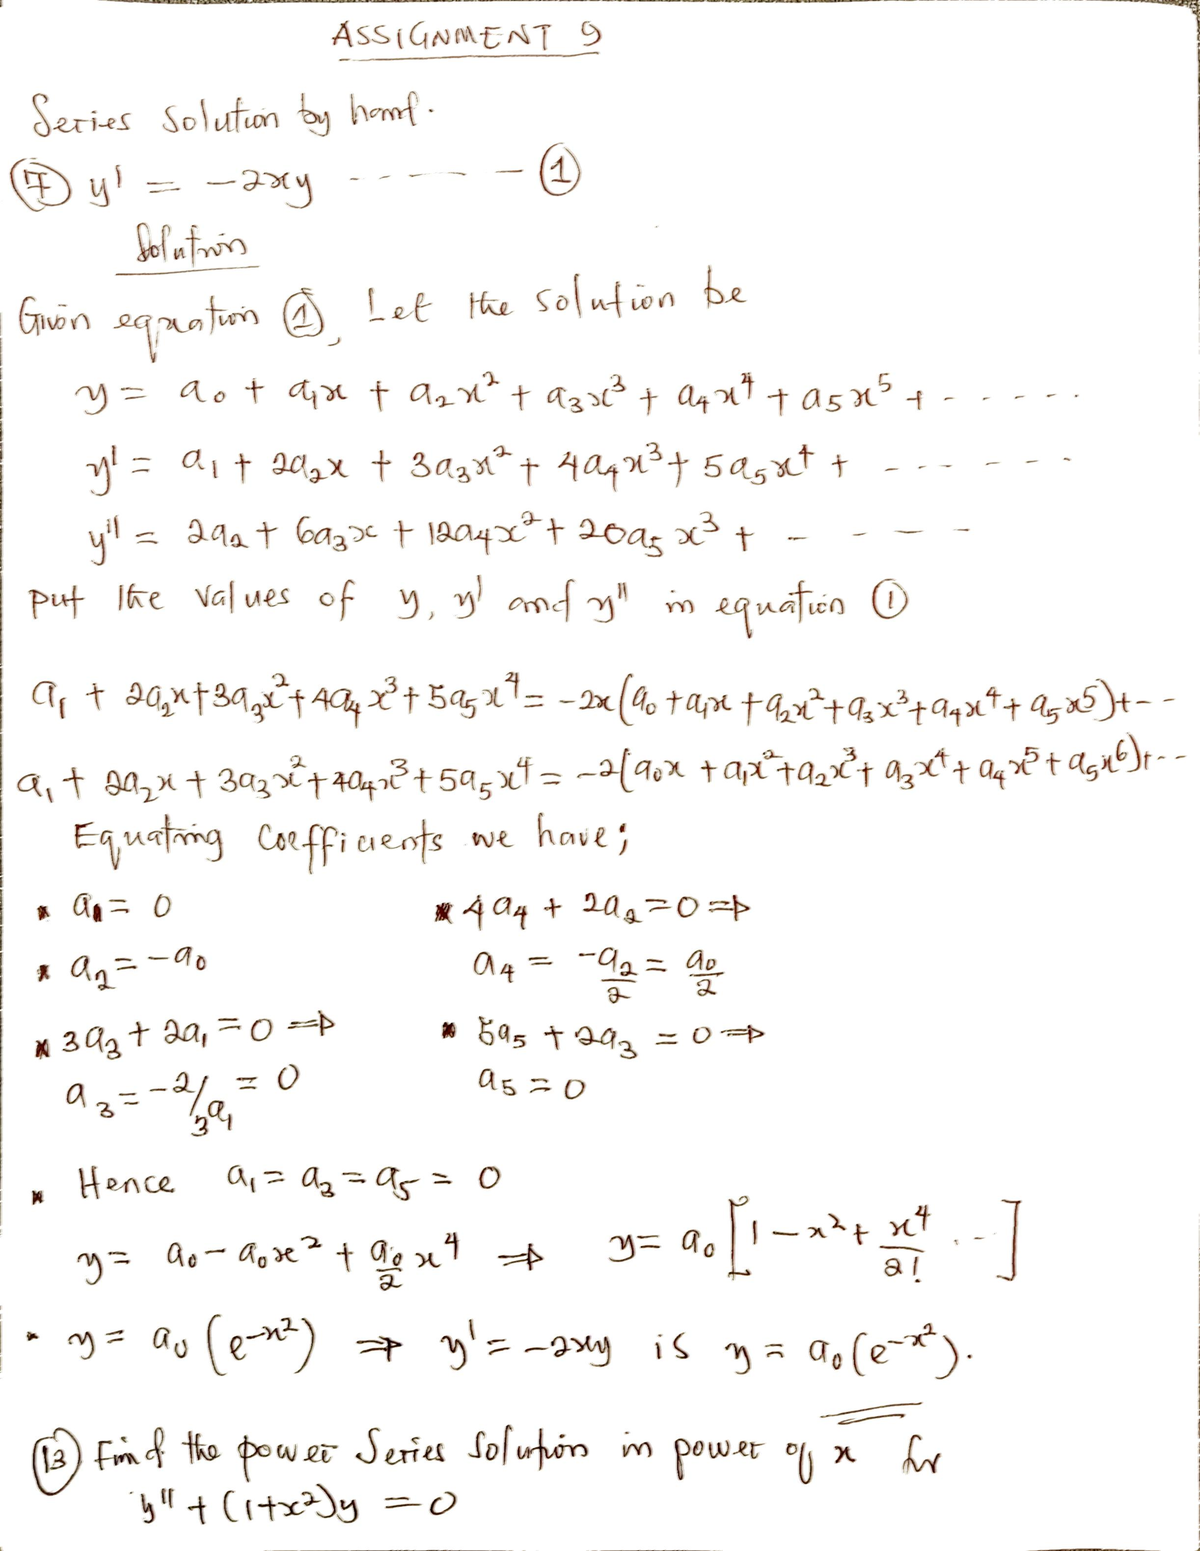 ASSIGNMENT 9
Series Solution by hand.
⑦ y' = -2xy ------ - ①
Solution
Given equation ①, Let the solution be
y = a₀ + a₁x + a₂x² + a₃x³ + a₄x⁴ + a₅x⁵ + - - - - -
y' = a₁ + 2a₂x + 3a₃x² + 4a₄x³ + 5a₅x⁴ + - - - - - -
y'' = 2a₂ + 6a₃x + 12a₄x² + 20a₅x³ + - - - -
put the values of y, y' and y'' in equation ①
a₁ + 2a₂x + 3a₃x² + 4a₄x³ + 5a₅x⁴ = -2x(a₀ + a₁x + a₂x² + a₃x³ + a₄x⁴ + a₅x5) + - -
a₁ + 2a₂x + 3a₃x² + 4a₄x³ + 5a₅x⁴ = -2(a₀x + a₁x² + a₂x³ + a₃x⁴ + a₄x⁵ + a₅x⁶) + - -
Equating Coefficients we have;
* a₁ = 0
* a₂ = -a₀
* 3a₃ + 2a₁ = 0 ⇒
a₃ = -2/3a₁ = 0
* 4a₄ + 2a₂ = 0 ⇒
a₄ = -a₂/2 = a₀/2
* 5a₅ + 2a₃ = 0 ⇒
a₅ = 0
* Hence a₁ = a₃ = a₅ = 0
y = a₀ - a₀x² + a₀/2 x⁴ ⇒ y = a₀[1 - x² + x⁴/2! . - -]
* y = a₀(e^-x²) ⇒ y' = -2xy is y = a₀(e^-x²).
⑬ Find the power Series Solution in power of x for
y'' + (1+x²)y = 0